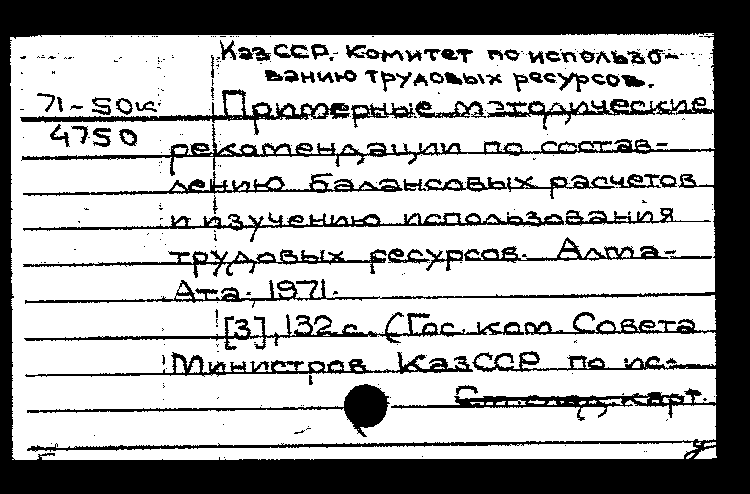 КазССР. Комитет по использо-
ванию трудовых ресурсов.
71-50к
4750
Примерные методические
рекомендации по состав-
лению балансовых расчетов
и изучению использования
трудовых ресурсов. Алма-
Ата. 1971.
[3], 132 с. (Гос. ком. Совета
Министров КазССР по ис-
См. след. карт.